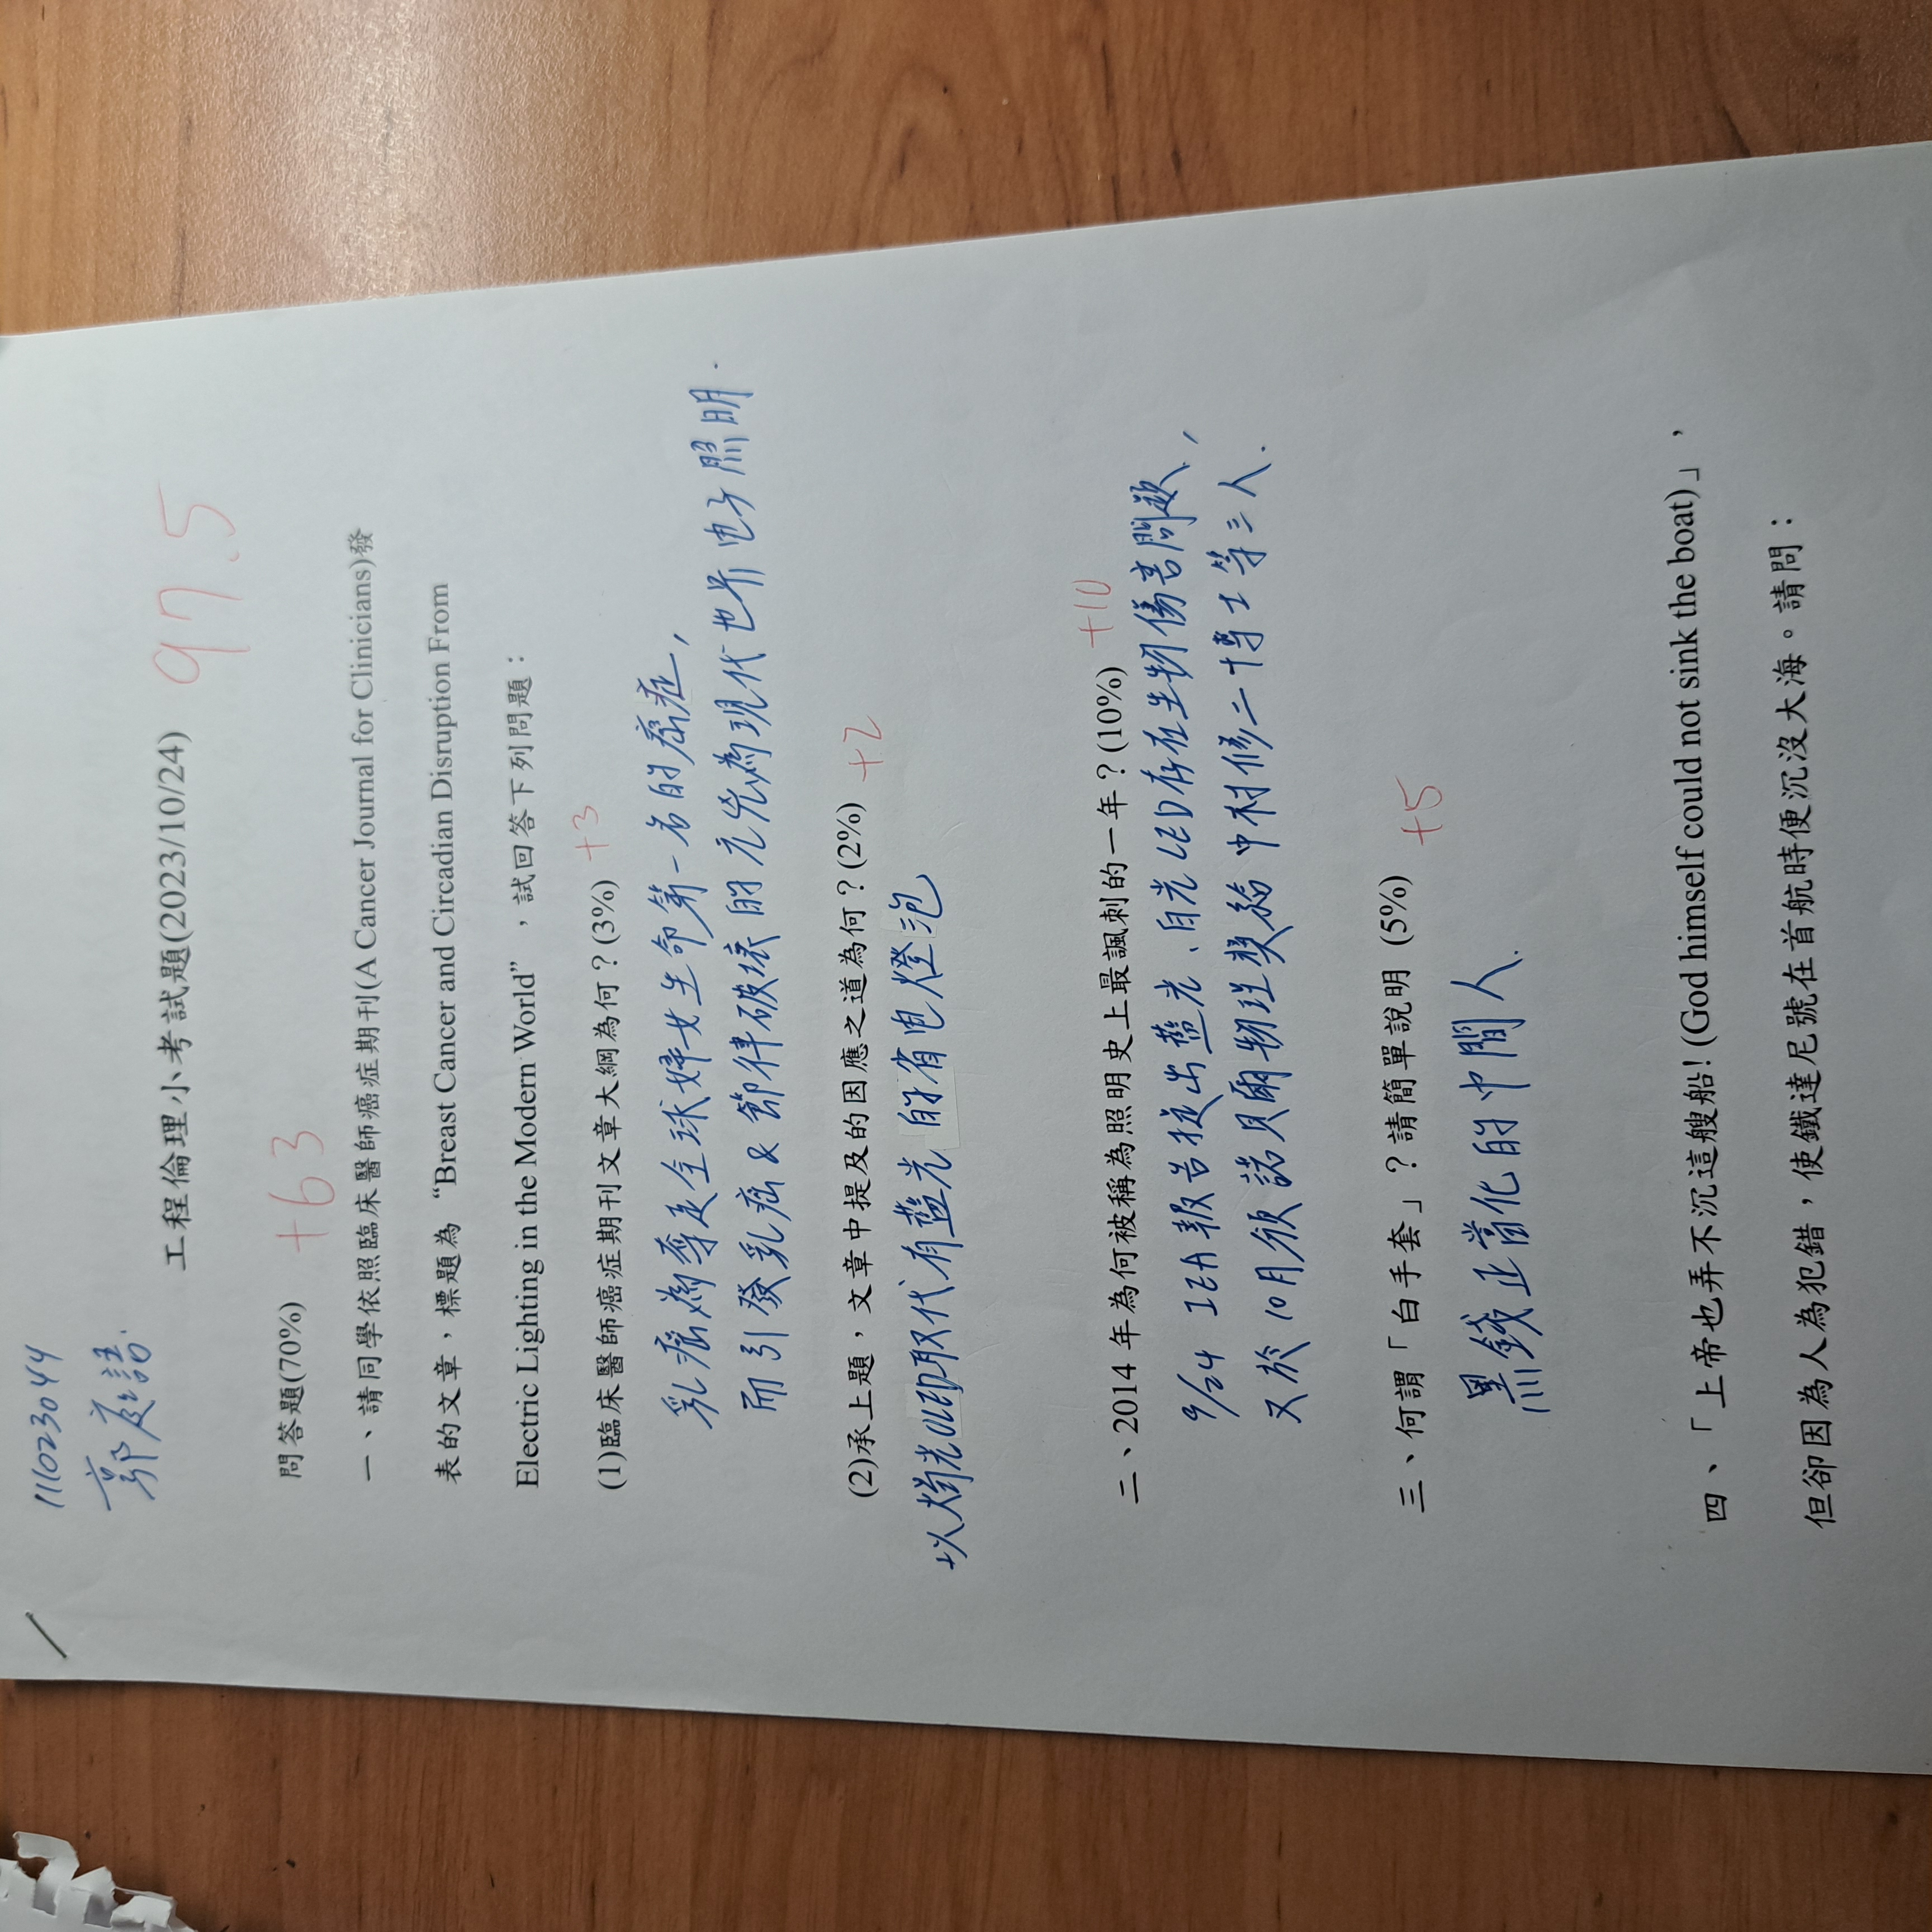 111023044
郭庭語.
工程倫理小考試題(2023/10/24) 97.5
問答題(70%) +63
一、請同學依照臨床醫師癌症期刊(A Cancer Journal for Clinicians)發
表的文章，標題為 “Breast Cancer and Circadian Disruption From
Electric Lighting in the Modern World” ，試回答下列問題：
(1)臨床醫師癌症期刊文章大綱為何？(3%) +3
乳癌為奪走全球婦女生命第一名的癌症,
而引發乳癌&節律破壞的元兇為現代世界电子照明.
(2)承上題，文章中提及的因應之道為何？(2%) +2
以燭光OLED取代有藍光的省电燈泡
二、2014 年為何被稱為照明史上最諷刺的一年？(10%) +10
9/24 IEA報告提出藍光、白光LED存在生物傷害問題,
又於10月頒諾貝爾物理獎給中村修二博士等三人.
三、何謂「白手套」？請簡單說明 (5%) +5
黑錢正當化的中間人.
四、「上帝也弄不沉這艘船! (God himself could not sink the boat)」，
但卻因為人為犯錯，使鐵達尼號在首航時便沉沒大海。請問：